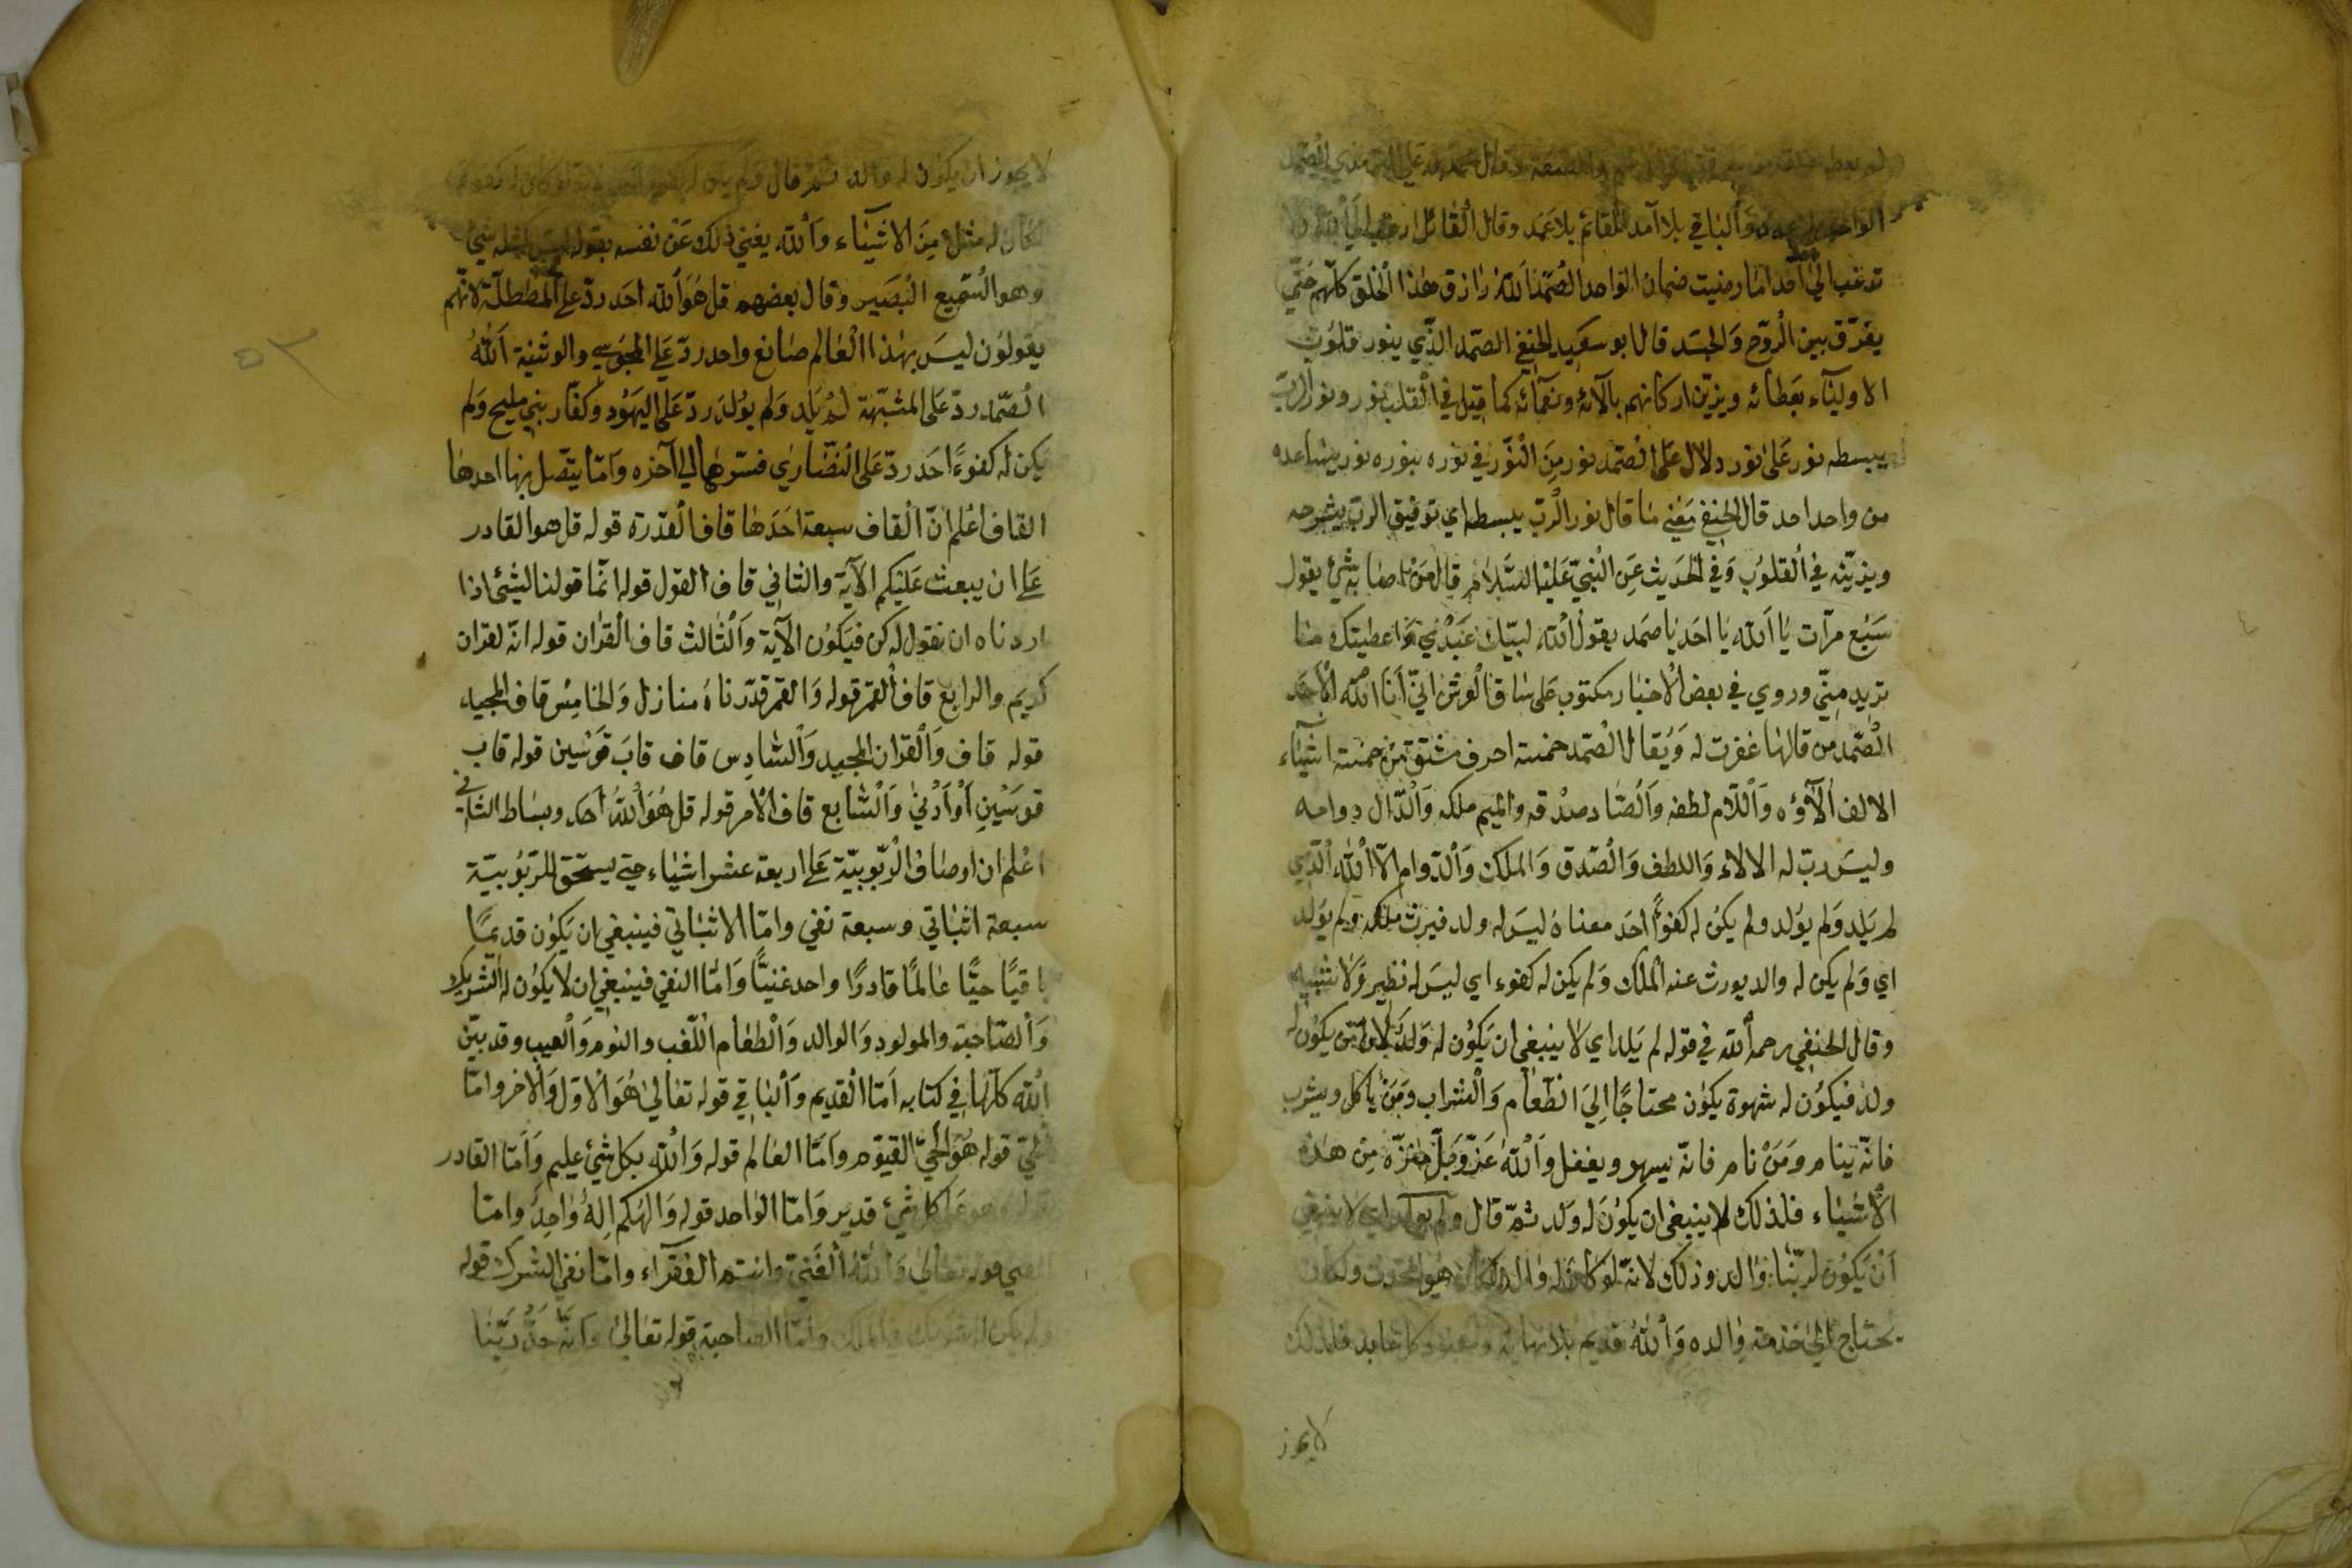 الواحد بلا عدد وَالباقي بلا آمد القائم بلا عَمَد وقال القائل ارغب الي الله ولا
ترغب الي احد اما رضيت ضمان الواحد الصّمد اَللهُ رازق هٰذا الخلق كلّهم حَتّي
يفرّق بين الرّوح وَالجسَد قال ابو سعَيد الحنفي الصّمد الذّي ينور قلوُب
الاوليٰاء بعَطائه ويزيّن اركانهم بآلائه ونعمٰائه كما قيل في القلب نور ونور الربّ
يبسطه نور عَلیٰ نور دلال عَلی الصّمد نور مِنَ النّور في نوره بنوره نور يساعده
من واحد احد قال الحنفي مَعني مٰا قال نور الرّب يبسطه اي توفيق الرب يشرحه
ويزيّنه في القلوُب وَفي الحَديث عَنِ النّبيّ عَليْه السَّلام قال مَنْ اصٰابه شيٌ يقول
سَبْع مرّآت يٰا اَلله يٰا احَد يٰا صمَد يقول اَلله لبيّك عَبْدي وَاعطيتك مٰا
تريد منيّ وروي في بعض الاخبٰار مكتوب عَلى سٰاق العْرش انيّ اَنَا الله الاَحَد
الصّمد من قالهٰا غفرت له وَيُقال الصّمد خمسة احرف مشتق من خمسة اشيٰاء
الالف اٰلآؤه وَاللّام لطفه وَالصّاد صدْقه والميم ملكه وَالدّال دوامه
وليسَ ربّ له الالاء وَاللطف وَالصّدق وَالملك وَالدّوام الّا الله الذّي
لم يَلد وَلم يوُلد ولم يكن له كفوًا احَد معنٰاهُ ليسَ له ولد فيرث ملكه ولم يوُلد
اي وَلم يكن له والد يورث عنه الملك وَلم يكن له كفوء اي ليسَ له نظير وَلا شبيه
وقال الحنفي رحمه الله في قوله لم يَلد اي لا ينبغي ان يَكوُن له وَلد لانّ من يكوُن له
ولد فيكوُن له شهوة يكوُن محتاجًا اِليَ الطّعٰام وَالشراب وَمَنْ ياكل ويشرب
فانّه ينام ومَنْ نام فانّه يسهو ويغفل وَاَلله عَزّ وَجَلّ منزّه مِن هذه
الاشيٰاء فلذلك لا ينبغي ان يكوُن له وَلد ثمّ قال ولم يولد اي لا ينبغي
اَنْ يَكوُن لربّنا وٰالد وذلك لانّه لو كان له وٰالد لكان هو المحدث ولكان
يحتاج الي خدمة وٰالده وَاللهُ قديم بلا نهاية كل عابد فلذلك
لا يجوز
٥٣
لا يجوز ان يكوُن له والد ثم قال وَلم يكن له
لكان له مثل مِنَ الاشيٰاء وَاَلله يعني ذلك عَنْ نفسه بقوله ليسَ كمثله شيٌ
وهو السّميع البْصَير وقال بعضهم قل هُوَ الله احَد ردّ علي المطّطلّة لانّهم
يقولوُن ليسَ بهٰذا العٰالم صٰانع واحد ردّ عَلي المجوُسي والوثنيّة اَللهُ
الصّمد ردّ عَلى المشبّهة لم يَلد وَلم يوُلدَ ردّ عَلى اليهوُد وكفّار بني مليح وَلم
يكن له كفوءًا احَد ردّ عَلى النصٰاري فسّرهٰا الي آخره وَامّا يتّصل بها احدها
القاف اعْلم انّ القاف سبعة احَدهٰا قاف القدْرة قوله قل هو القادر
عَلي ان يبعث عَليْكم الآية والثاني قاف القول قوله انّما قولنا لشئ اذا
اردناه ان نقول له كن فيَكوُن الآية وَالثالث قاف القرٰان قوله انّه لقرٰان
كريم والرابع قاف القمَر قوله وَالقمر قدّرناهُ منازل وَالخامِس قاف المجيد
قوله قاف وَالقرٰان المجيد وَالسٰادِس قاف قابَ قوَسْين قوله قاب
قوسَيْنِ اَوْ اَدْنيٰ وَالسٰابع قاف الامر قوله قل هُوَ اللهُ اَحَد وبسٰاط الثاني
اعْلم ان اوصٰاف الرّبوبيّة عَلي اربعة عشر اشيٰاء حتي يستحق للرّبوُبيّة
سبعة اثبٰاتي وسبعة نفي وامّا الاثبٰاتي فينبغي ان يَكوُن قديمًا
باقيًا حيًّا عٰالمًا قادرًا واحد غنيًّا وَامّا النفي فينبغي ان لا يكوُن له الشريك
وَالصّاحبة والمولود وَالوالد وَالطعٰام اللّغب والنوم وَالعيب وقد بيّن
الله كلّها في كتابه اَمّا القديم وَالباقي قوله تعٰالي هُوَ الاوّل وَالاخر وامّا
الحيّ قوله هُوَ الحَيّ القيّوم وَاَمّا العٰالم قوله وَاللهُ بكل شئ عليم وَاَمّا القادر
قوله وهو عَلي كل شيء قدير وَامّا الواحد قوله وَالهٰكم اِلٰهٌ وٰاحِدٌ وامّا
الغني قوله تعٰالي وَاللهُ الغَنيّ وانتم الفقرآء وامّا نفي الشرك قوله
ولم يكن له شريك في الملك وَامّا الصاحبة قوله تعٰالي وَانّه جَدُّ رَبّنا